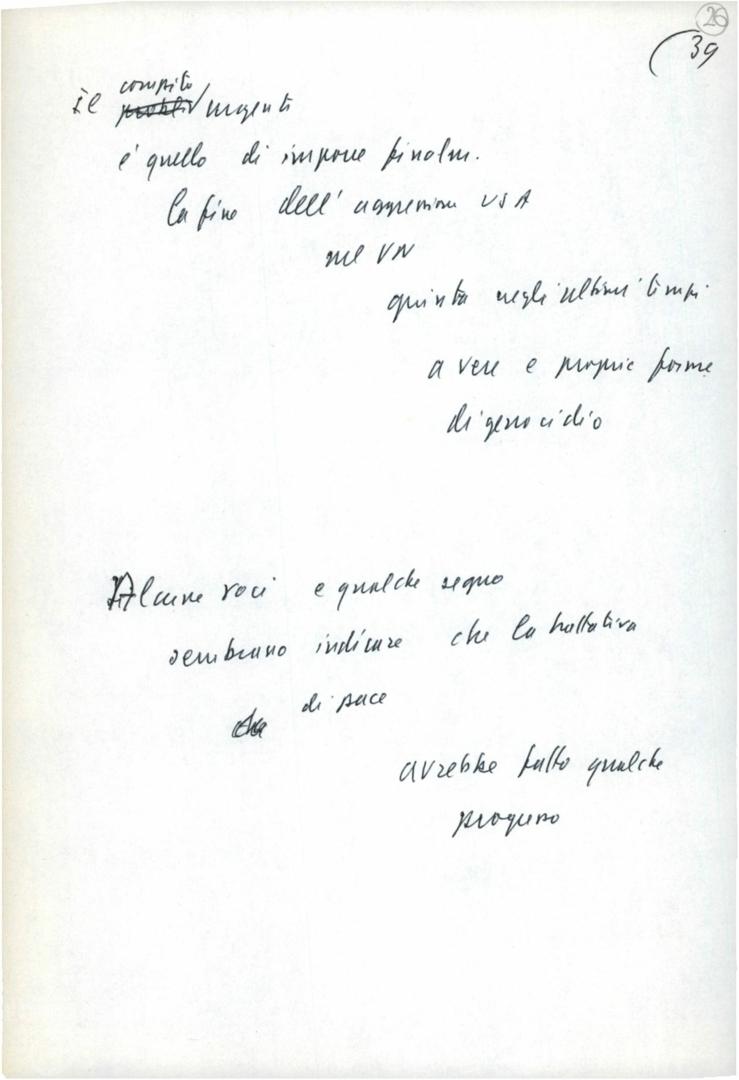 26
(39
compito
Il probl. urgente
è quello di imporre finalm.
la fine dell'aggressione USA
nel VN
giunta negli ultimi tempi
a vere e proprie forme
di genocidio
Alcune voci e qualche segno
sembrano indicare che la trattativa
che di pace
avrebbe fatto qualche
progresso